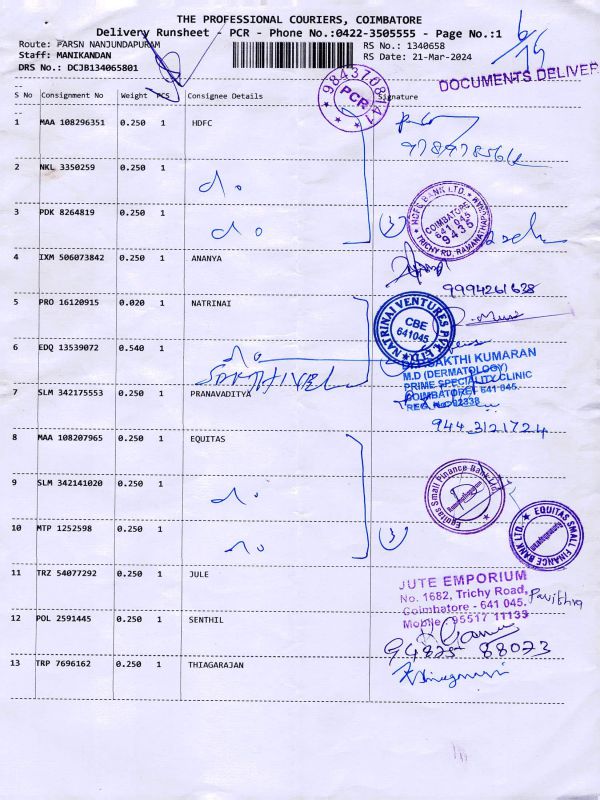 THE PROFESSIONAL COURIERS, COIMBATORE
Delivery Runsheet - PCR - Phone No.:0422-3505555 - Page No.:1
Route: PARSN NANJUNDAPURAM RS No.: 1340658
Staff: MANIKANDAN RS Date: 21-Mar-2024
DRS No.: DCJB134065801
DOCUMENTS DELIVER
9843708141
PCR
S No Consignment No Weight PCS Consignee Details Signature
1 MAA 108296351 0.250 1 HDFC
2 NKL 3350259 0.250 1 do.
3 PDK 8264819 0.250 1 do. (3)
HDFC BANK LTD.
COIMBATORE
641 045
9435
TRICHY RD., RAMANATHAPURAM
4 IXM 506073842 0.250 1 ANANYA
9994261638
5 PRO 16120915 0.020 1 NATRINAI
NATRINAI VENTURES PVT. LTD.
CBE
641045
6 EDQ 13539072 0.540 1 do
SAKTHI KUMARAN
M.D (DERMATOLOGY)
PRIME SPECIALITY CLINIC
COIMBATORE - 641 045.
7 SLM 342175553 0.250 1 PRANAVADITYA
944 3121724
8 MAA 108207965 0.250 1 EQUITAS
9 SLM 342141020 0.250 1 do.
Equitas Small Finance Bank Ltd
10 MTP 1252598 0.250 1 do (3)
EQUITAS SMALL FINANCE BANK LTD.
11 TRZ 54077292 0.250 1 JULE
JUTE EMPORIUM
No. 1682, Trichy Road,
Coimbatore - 641 045. Pavithra
Mobile: 95517 11133
12 POL 2591445 0.250 1 SENTHIL
94875 88023
13 TRP 7696162 0.250 1 THIAGARAJAN